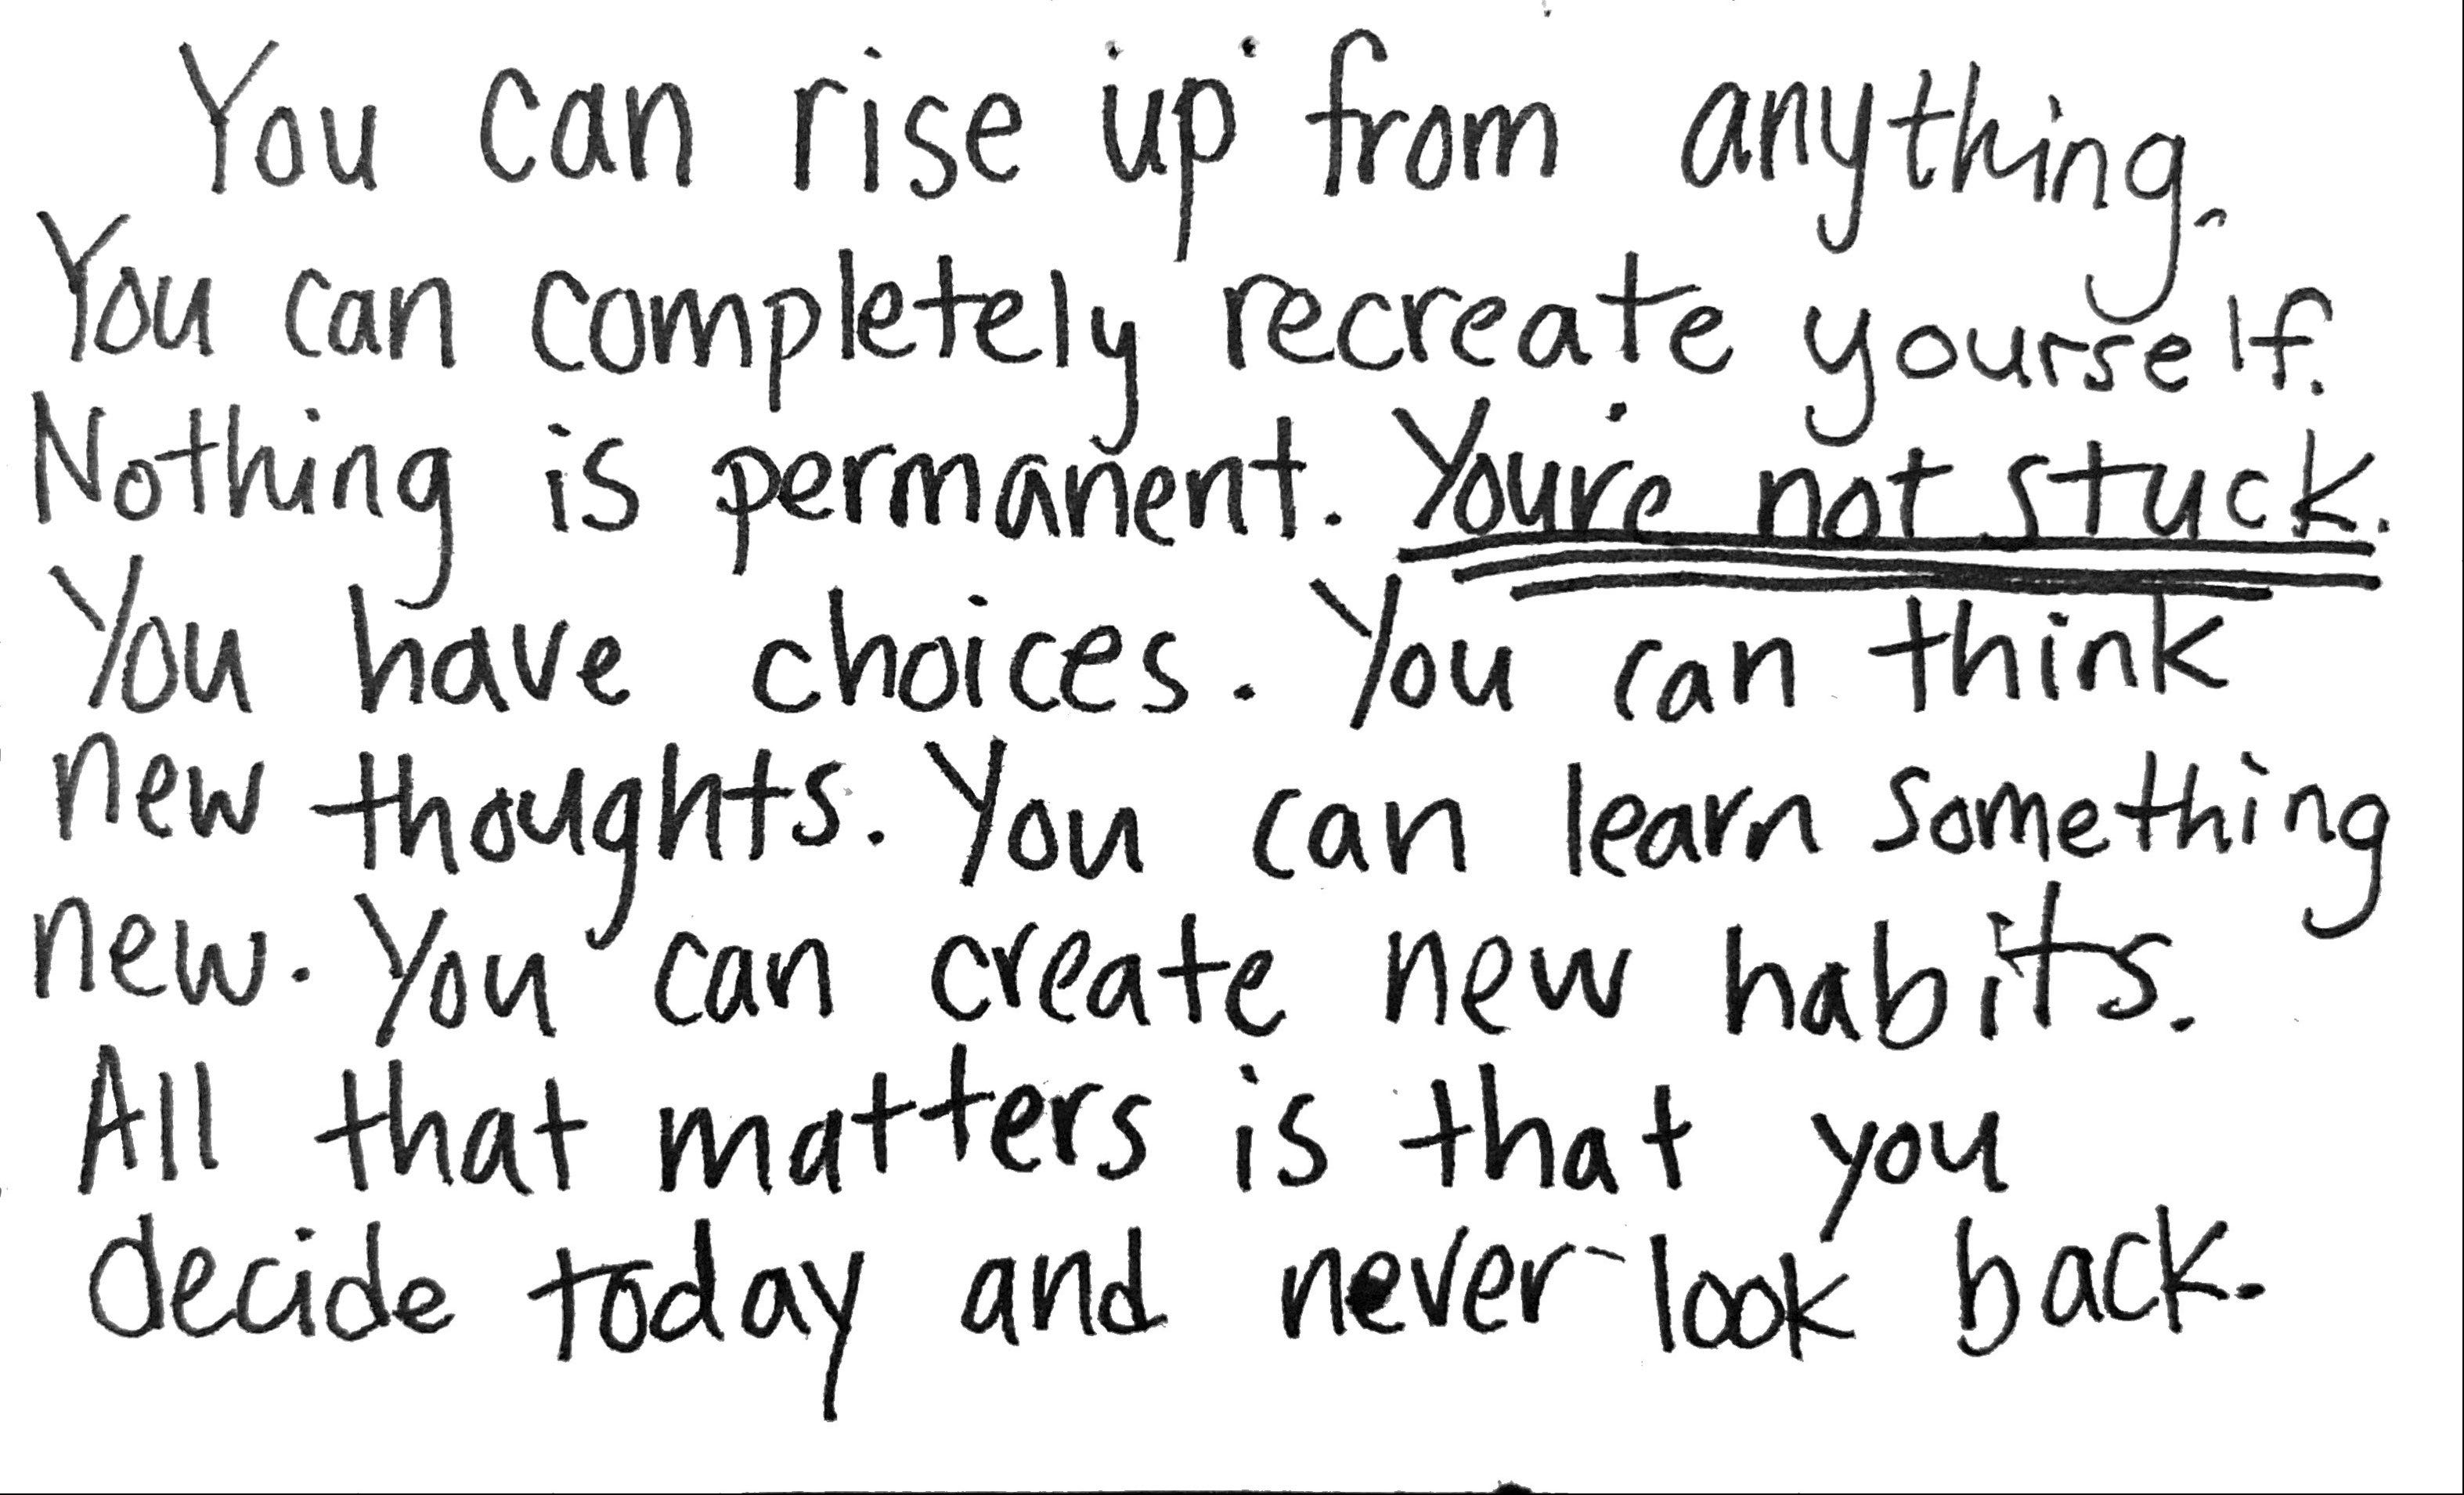 You can rise up from anything.
You can completely recreate yourself.
Nothing is permanent. You're not stuck.
You have choices. You can think
new thoughts. You can learn something
new. You can create new habits.
All that matters is that you
decide today and never look back.